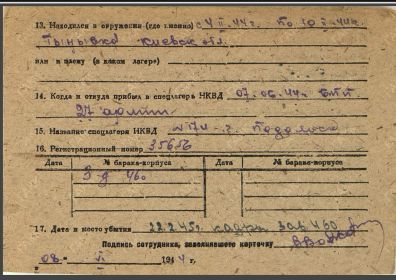 13. Находился в окружении (где именно) с 4 II.44г. по 10 II.44г.
Тыновка Киевск обл.
или в плену (в каком лагере)
14. Когда и откуда прибыл в спецлагерь НКВД 07.06.44г.
27 армии
15. Название спецлагеря НКВД №174 г. Подольск
16. Регистрационный номер 35656
Дата № барака-корпуса Дата № барака-корпуса
460
17. Дата и место убытия 22.2.45г. зав. 460
Подпись сотрудника, заполнявшего карточку
08. VI 1944 г.